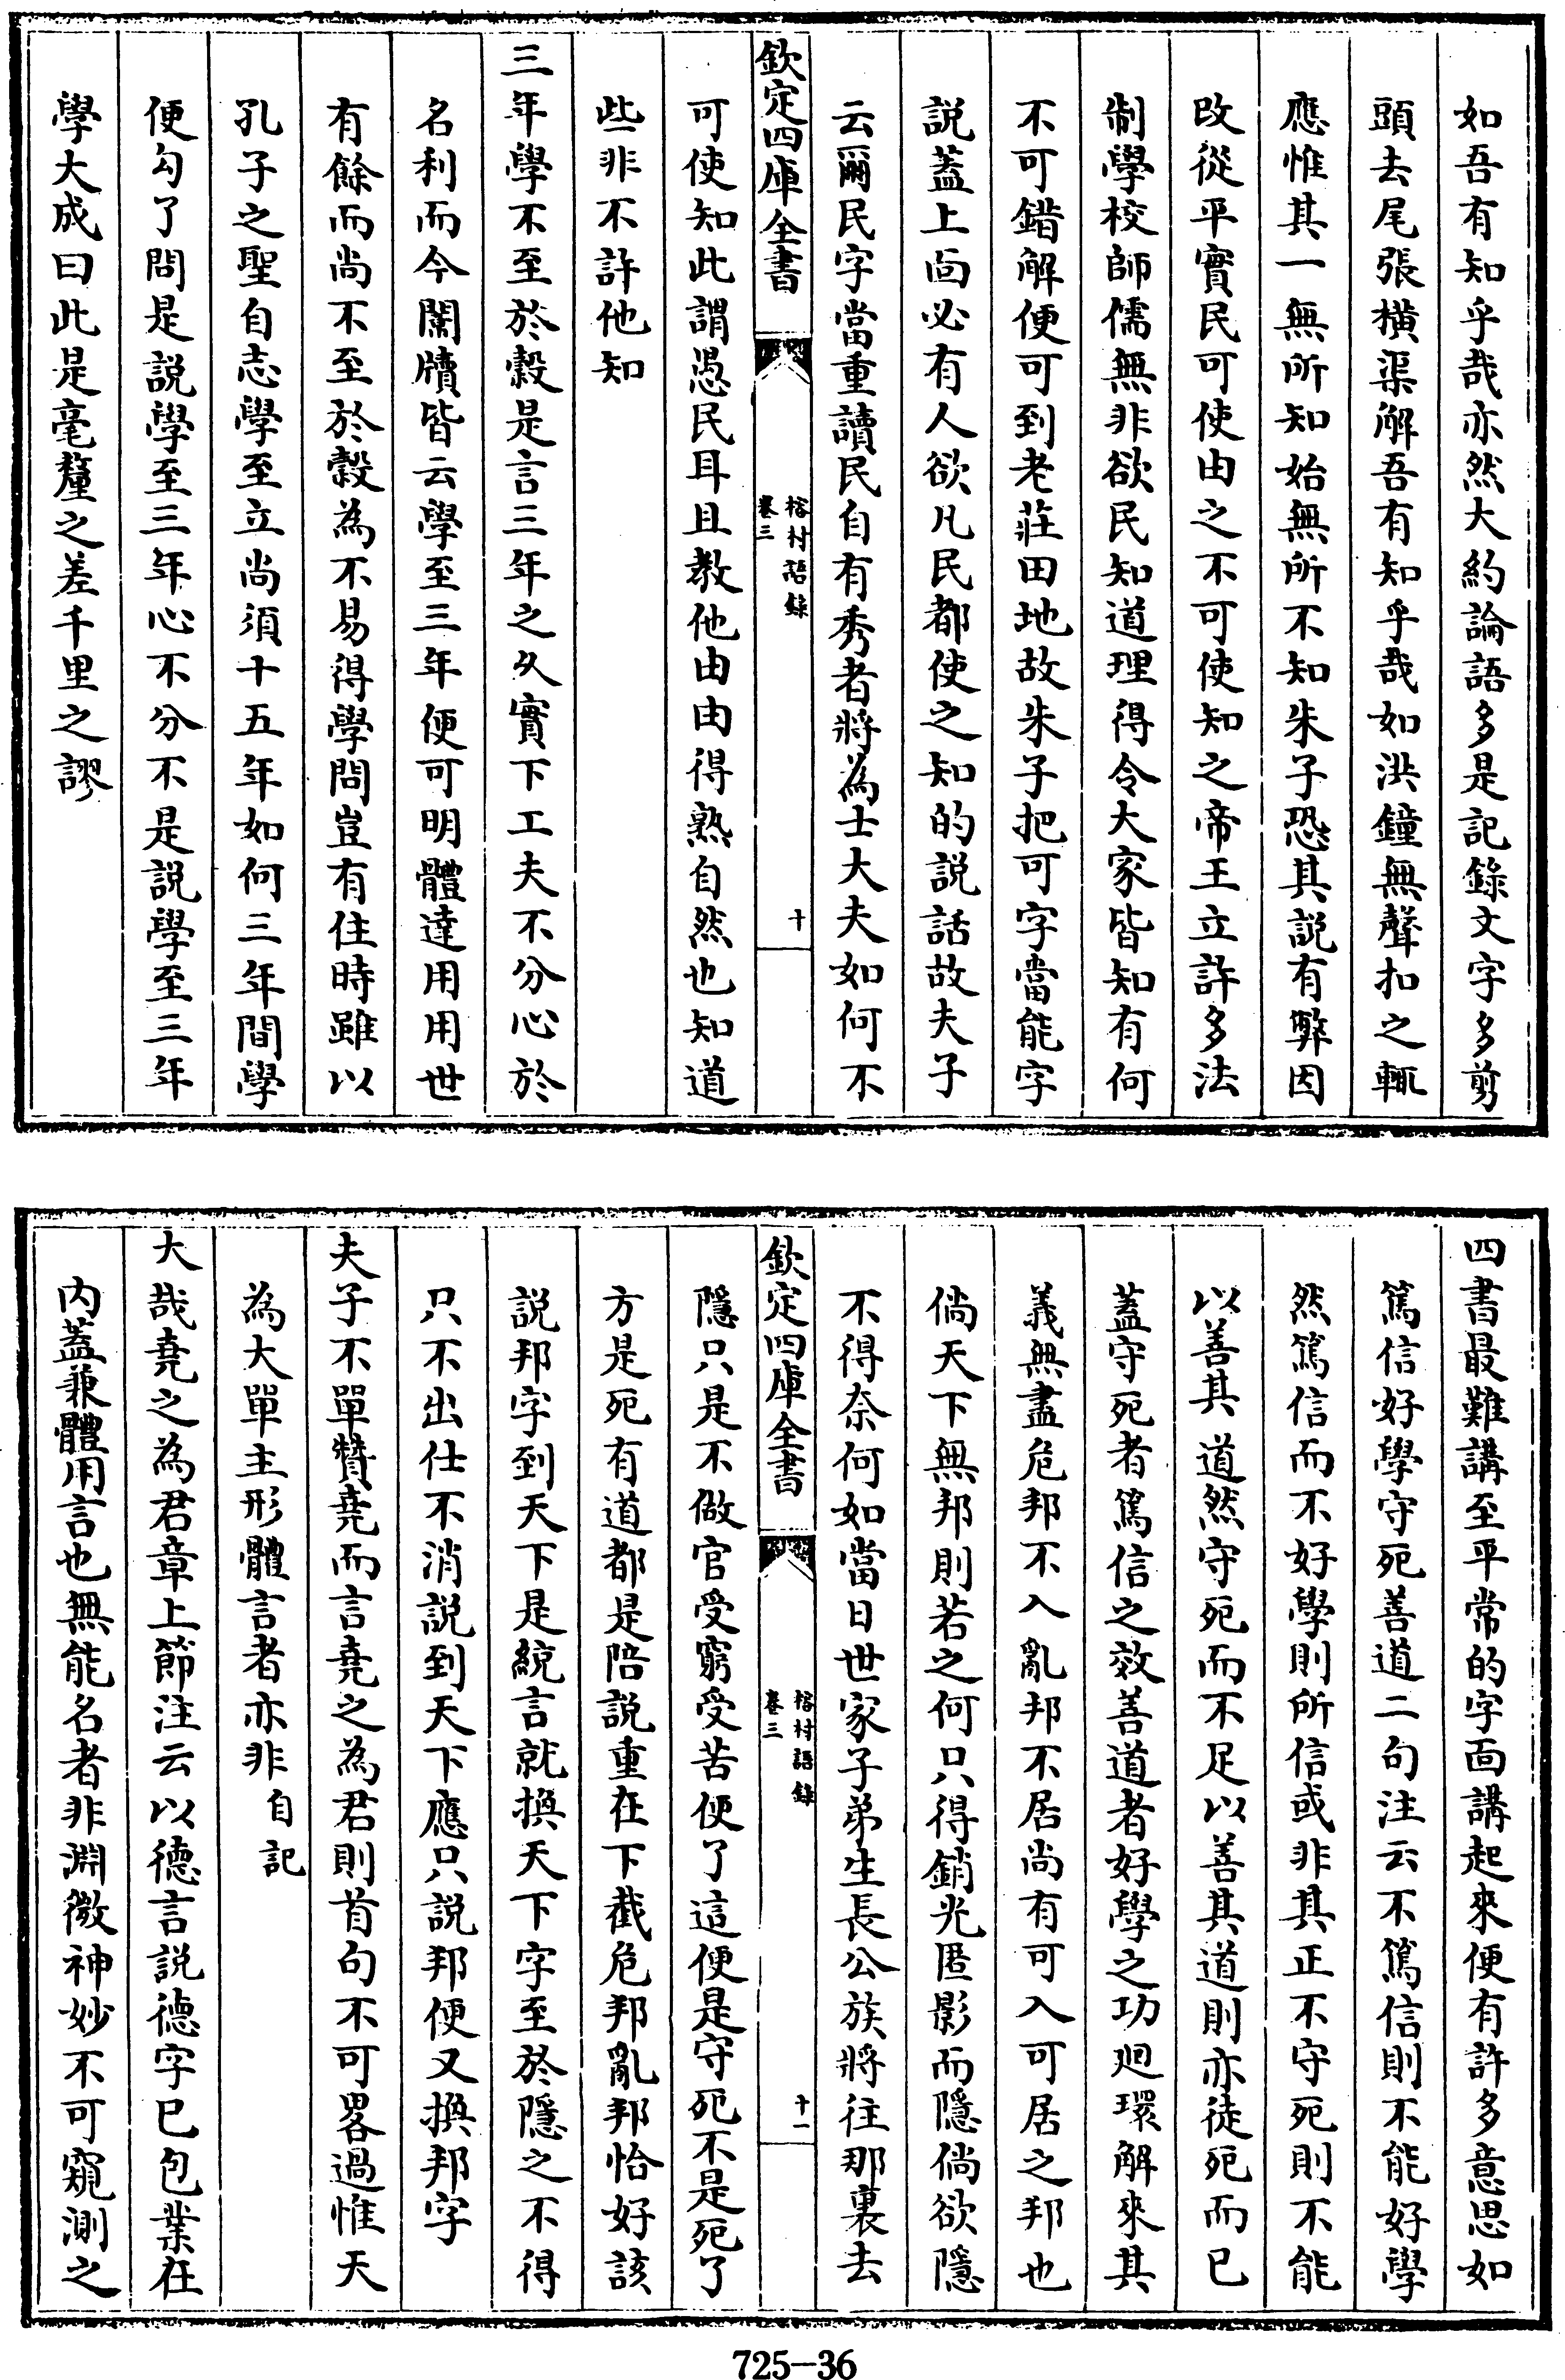 如吾有知乎哉亦然大約論語多是記錄文字多剪
頭去尾張橫渠解吾有知乎哉如洪鐘無聲扣之輒
應惟其一無所知始無所不知朱子恐其説有弊因
改從平實民可使由之不可使知之帝王立許多法
制學校師儒無非欲民知道理得令大家皆知有何
不可錯解便可到老莊田地故朱子把可字當能字
説蓋上面必有人欲凡民都使之知的説話故夫子
云爾民字當重讀民自有秀者將為士大夫如何不
欽定四庫全書
榕村語錄
卷三
十
可使知此謂愚民耳且教他由由得熟自然也知道
些非不許他知
三年學不至於穀是言三年之久實下工夫不分心於
名利而今闈牘皆云學至三年便可明體達用用世
有餘而尚不至於穀為不易得學問豈有住時雖以
孔子之聖自志學至立尚須十五年如何三年間學
便勾了問是説學至三年心不分不是説學至三年
學大成曰此是毫釐之差千里之謬
四書最難講至平常的字面講起來便有許多意思如
篤信好學守死善道二句注云不篤信則不能好學
然篤信而不好學則所信或非其正不守死則不能
以善其道然守死而不足以善其道則亦徒死而已
蓋守死者篤信之效善道者好學之功廻環解來其
義無盡危邦不入亂邦不居尚有可入可居之邦也
倘天下無邦則若之何只得銷光匿影而隱倘欲隱
不得奈何如當日世家子弟生長公族將往那裏去
欽定四庫全書
榕村語錄
卷三
十一
隱只是不做官受窮受苦便了這便是守死不是死了
方是死有道都是陪説重在下截危邦亂邦恰好該
説邦字到天下是統言就換天下字至於隱之不得
只不出仕不消説到天下應只説邦便又換邦字
夫子不單贊堯而言堯之為君則首句不可畧過惟天
為大單主形體言者亦非自記
大哉堯之為君章上節注云以德言説德字已包業在
内蓋兼體用言也無能名者非淵微神妙不可窺測之
725-36